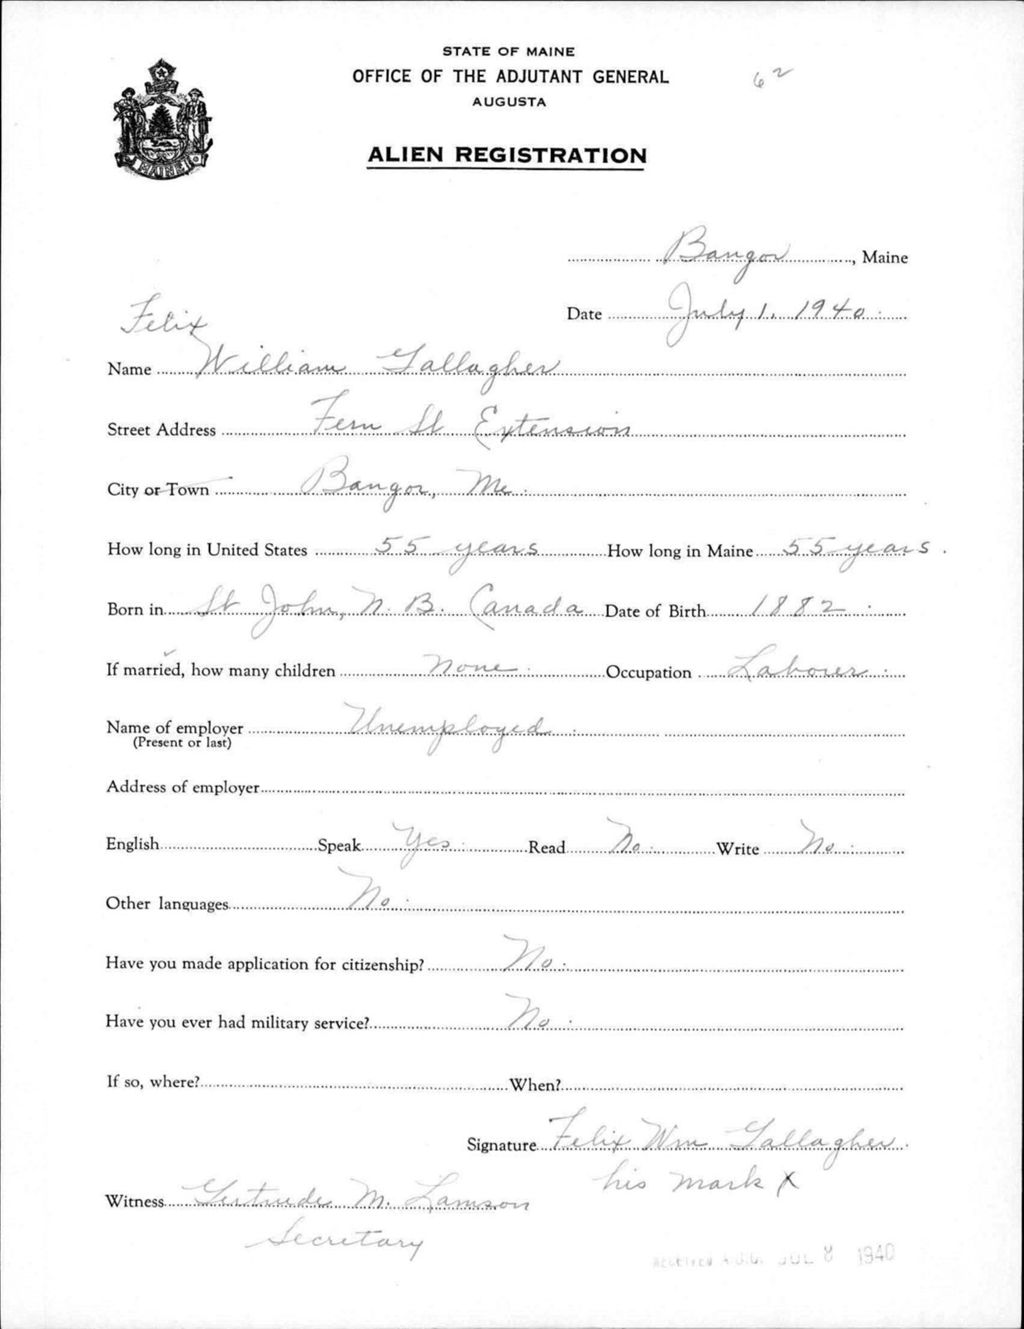 STATE OF MAINE
OFFICE OF THE ADJUTANT GENERAL
AUGUSTA
62
ALIEN REGISTRATION
MAINE
Bangor, Maine
Date July 1, 1940
Felix
Name William Gallagher
Street Address Fern St Extension
City or Town Bangor, Me.
How long in United States 55 years How long in Maine 55 years.
Born in St John, N. B. Canada Date of Birth 1882
If married, how many children None Occupation Laborer
Name of employer Unemployed
(Present or last)
Address of employer
English Speak Yes Read No Write No
Other languages No
Have you made application for citizenship? No
Have you ever had military service? No
If so, where? When?
Signature Felix Wm Gallagher
his mark X
Witness Gertrude M. Lamson
Secretary
Received A.G.O. JUL 8 1940